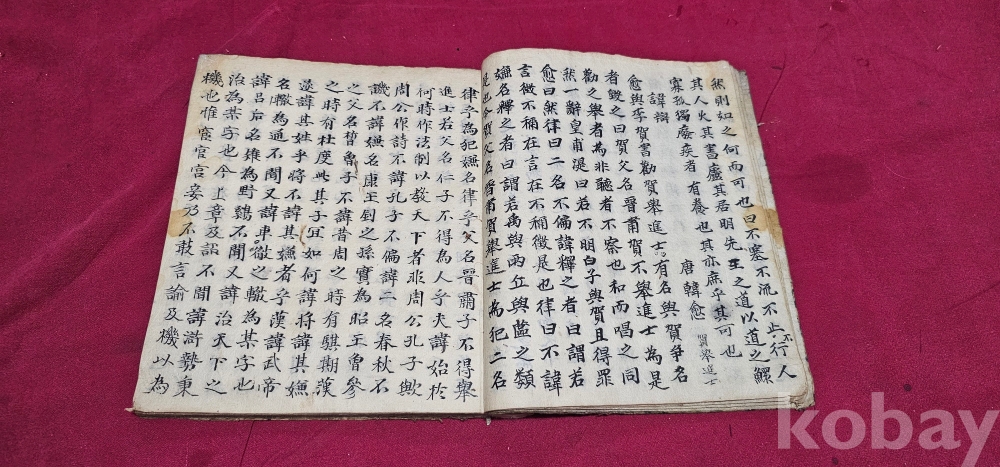 然則如之何而可也曰不塞不流不止不行人
其人火其書廬其居明先王之道以道之鰥
寡孤獨癈疾者有養也其亦庶乎其可也
諱辯 唐韓愈 賀舉進士
愈與李賀書勸賀舉進士有名與賀爭名
者毀之曰賀父名晉肅賀不舉進士為是
勸之舉者為非聽者不察也和而唱之同
然一辭皇甫湜曰若不明白子與賀且得罪
愈曰然律曰二名不偏諱釋之者曰謂若
言徵不稱在言在不稱徵是也律曰不諱
嫌名釋之者曰謂若禹與雨丘與蓲之類
是也今賀父名晉肅賀舉進士為犯二名
律乎為犯嫌名律乎父名晉肅子不得舉
進士若父名仁子不得為人乎夫諱始於
何時作法制以教天下者非周公孔子歟
周公作詩不諱孔子不偏諱二名春秋不
譏不諱嫌名康王釗之孫實為昭王曾參
之父名晳曾子不諱昔周之時有騏期漢
之時有杜度此其子宜如何諱將諱其嫌
遂諱其姓乎將不諱其嫌者乎漢諱武帝
名轍為通不聞又諱車轍之轍為某字也
諱呂后名雉為野雞不聞又諱治天下之
治為某字也今上章及詔不聞諱滸勢秉
機也惟宦官宮妾乃不敢言諭及機以為
kobay